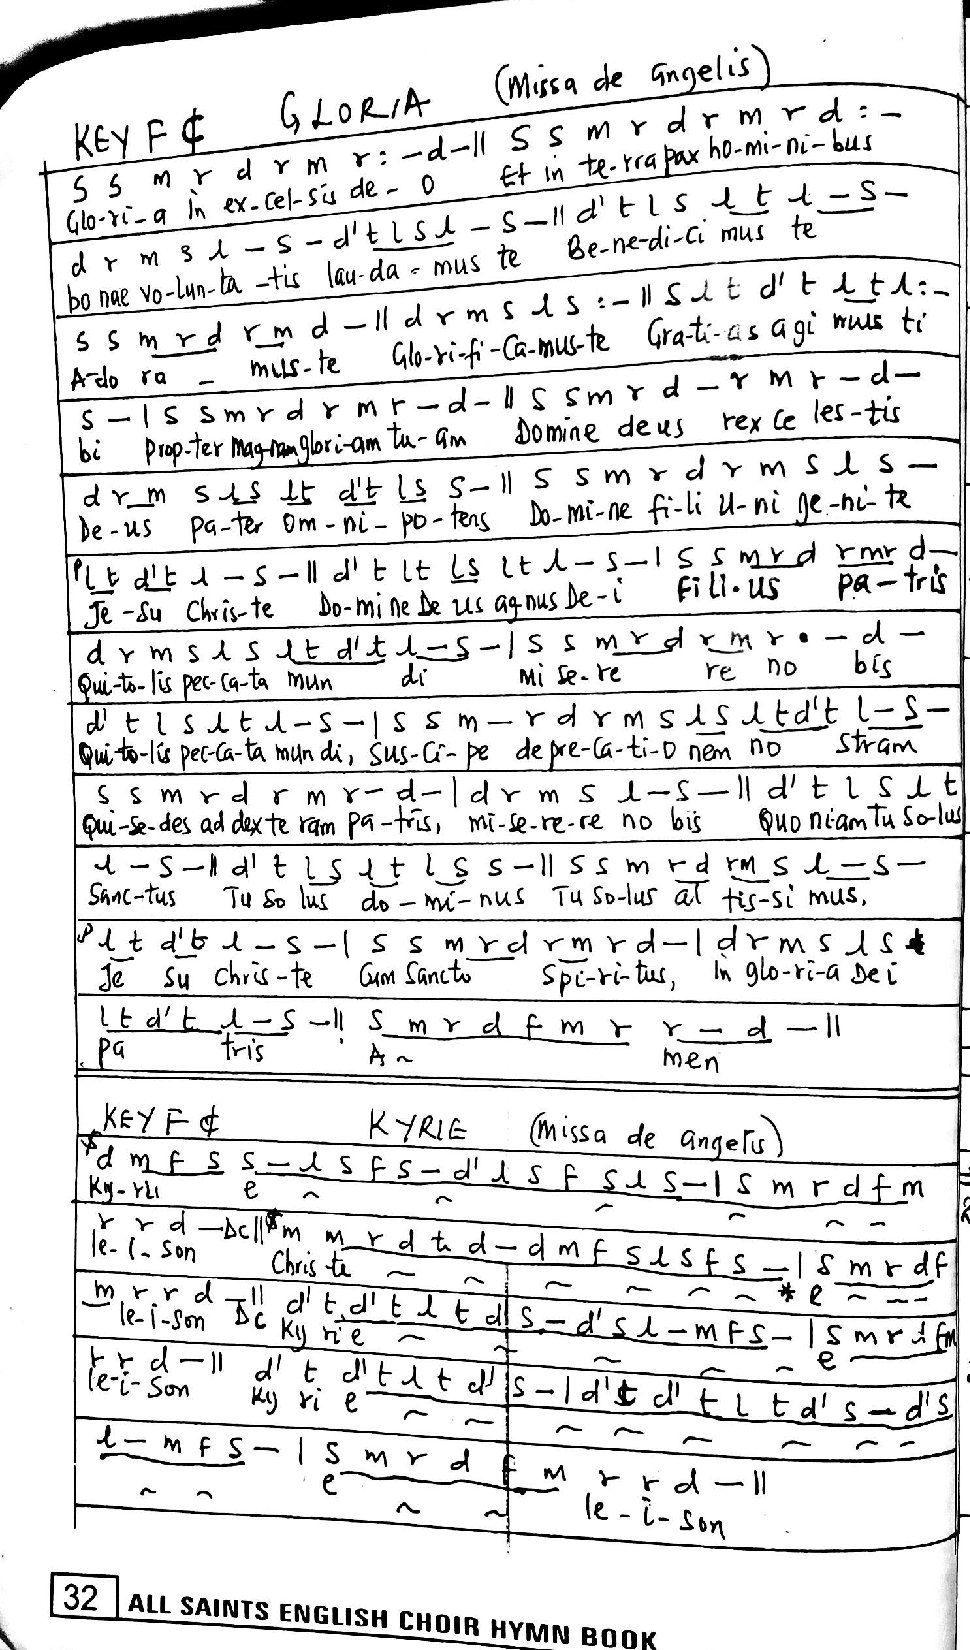 KEY F ¢ GLORIA (Missa de angelis)
s s m r d r m r : - d - || s s m r d r m r d : -
Glo-ri-a in ex-cel-sis de - o Et in te-rra pax ho-mi-ni-bus
d r m s l - s - d' t l s l - s - || d' t l s l t l - s -
bo nae vo-lun-ta -tis lau-da - mus te Be-ne-di-ci mus te
s s m r d r m d - || d r m s l s : - || s l t d' t l t l : -
A-do ra - mus-te Glo-ri-fi-ca-mus-te Gra-ti-as agi mus ti
s - | s s m r d r m r - d - || s s m r d - r m r - d -
bi prop-ter magnam glori-am tu-am Domine deus rex ce les-tis
d r m s l s l t d' t l s s - || s s m r d r m s l s -
De-us pa-ter om-ni-po-tens Do-mi-ne fi-li u-ni ge-ni-te
l t d' t l - s - || d' t l t l s l t l - s - | s s m r d r m r d -
Je-su Chris-te Do-mi ne De us agnus De-i Fili-us pa-tris
d r m s l s l t d' t l - s - | s s m r d r m r • - d -
Qui-to-lis pec-ca-ta mun di mi se-re re no bis
d' t l s l t l - s - | s s m - r d r m s l s l t d' t l - s -
Qui-to-lis pec-ca-ta mun di, sus-ci-pe de pre-ca-ti-o nem no stram
s s m r d r m r - d - | d r m s l - s - || d' t l s l t
Qui-se-des ad dex te ram pa-tris, mi-se-re-re no bis Quo niam Tu so-lus
l - s - || d' t l s l t l s s - || s s m r d r m s l - s -
Sanc-tus Tu so lus do - mi-nus Tu so-lus al tis-si mus,
l t d' t l - s - | s s m r d r m r d - | d r m s l s
Je su Chris-te Cum Sancto Spi-ri-tus, in glo-ri-a Dei
l t d' t l - s - || s m r d f m r r - d - ||
pa tris A ~ men
KEY F ¢ KYRIE (Missa de angelis)
d m f s s - l s f s - d' l s f s l s - | s m r d f m
Ky-rii e ~ ~ ~ ~ ~ -
r r d - DC || m m r d t, d - d m f s l s f s - | s m r d f
le-i-son Chris-te ~ ~ ~ ~ ~ ~ * e ~ - -
m r r d - || d' t d' t l t d' s - d' s l - m f s - | s m r d f m
le-i-son DC Ky rie ~ ~ ~ ~ ~ e
r r d - || d' t d' t l t d' s - | d' t d' t l t d' s - d' s
le-i-son Ky ri e ~ ~ ~ ~ ~ ~ ~ ~
l - m f s - | s m r d f m r r d - ||
~ ~ e ~ ~ le-i-son
32 ALL SAINTS ENGLISH CHOIR HYMN BOOK